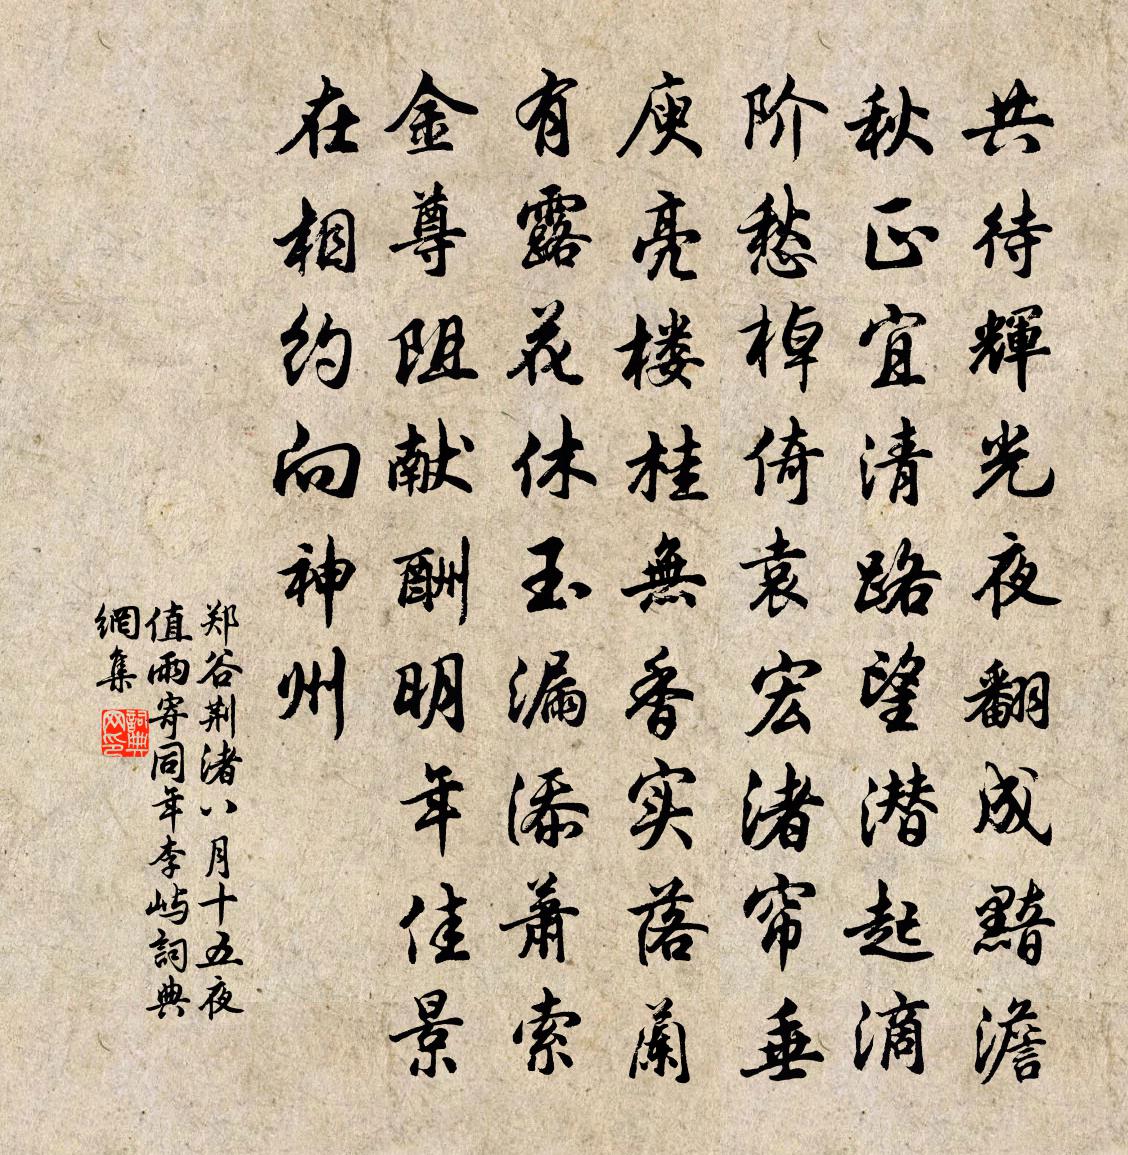 共待輝光夜翻成黯澹
秋正宜清路望潜起滴
阶愁棹倚袁宏渚帘垂
庾亮楼桂無香实落蘭
有露花休玉漏添蕭索
金尊阻献酬明年佳景
在相约向神州
郑谷荆渚八月十五夜
值雨寄同年李屿詞典
網集
詞典
网印